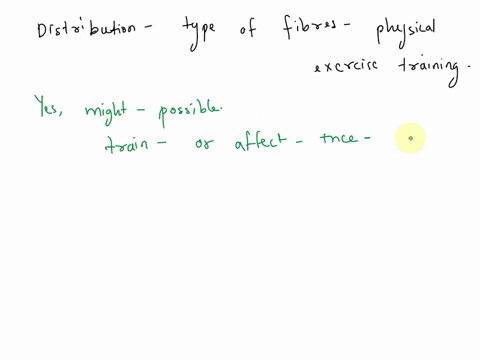 Distribution - type of fibres - physical
exercise training.
Yes, might - possible.
train - or affect - tnce -